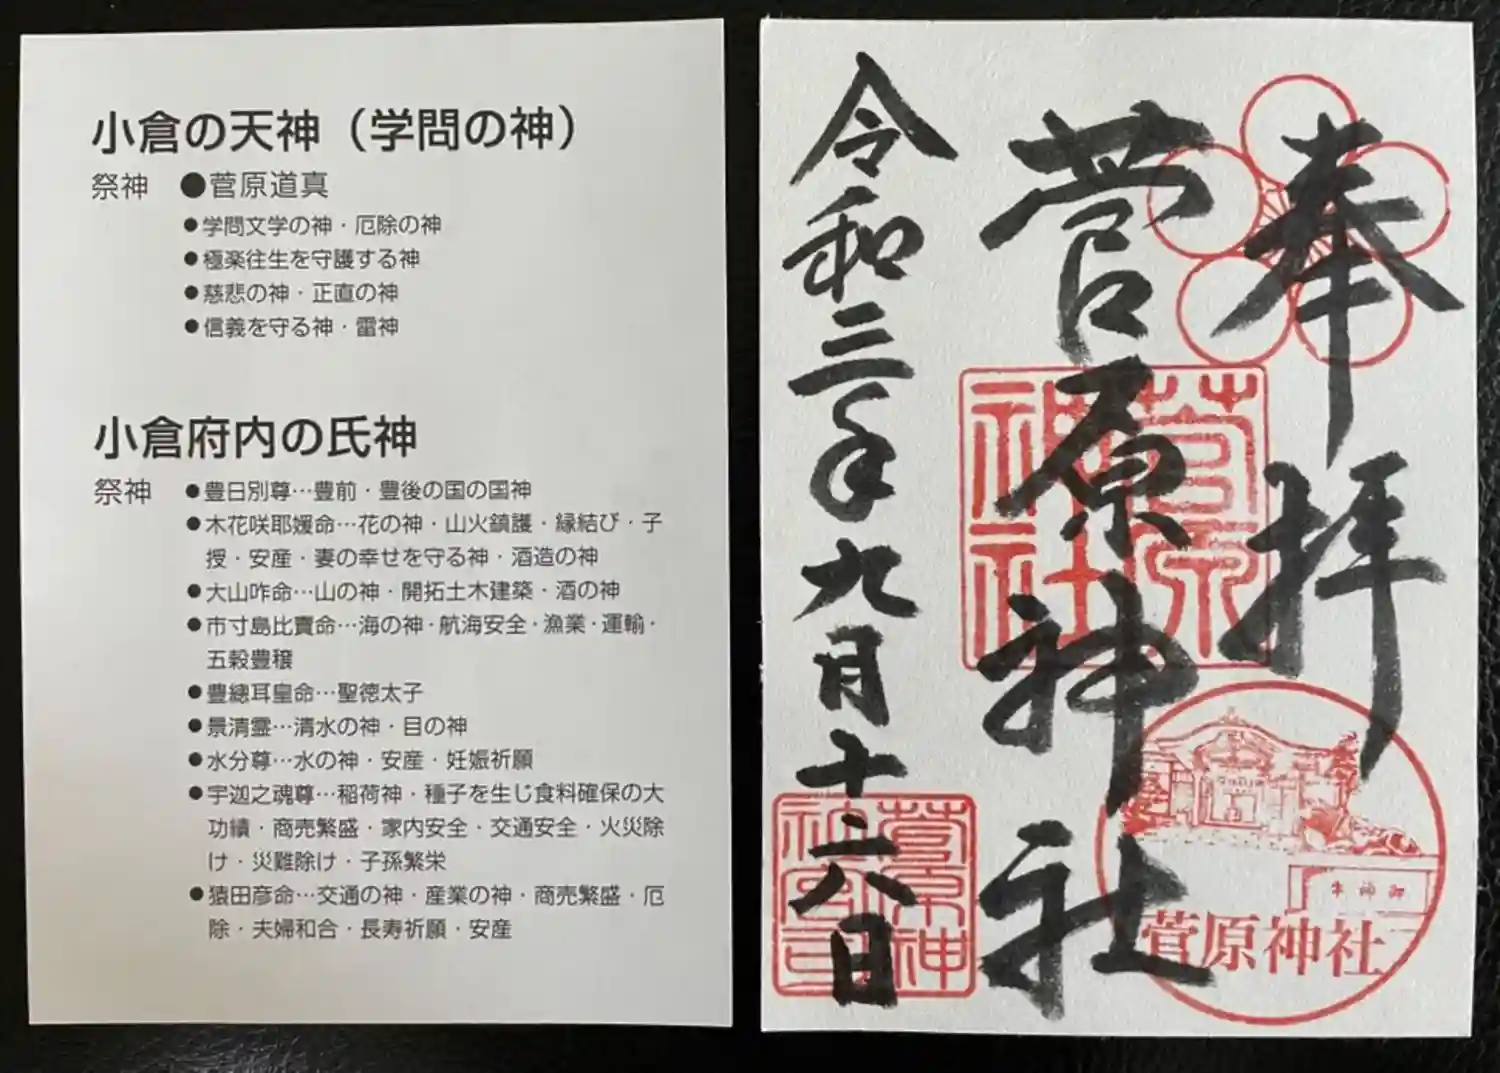 小倉の天神（学問の神）
祭神 ●菅原道真
●学問文学の神・厄除の神
●極楽往生を守護する神
●慈悲の神・正直の神
●信義を守る神・雷神
小倉府内の氏神
祭神 ●豊日別尊…豊前・豊後の国の国神
●木花咲耶媛命…花の神・山火鎮護・縁結び・子
授・安産・妻の幸せを守る神・酒造の神
●大山咋命…山の神・開拓土木建築・酒の神
●市寸島比賣命…海の神・航海安全・漁業・運輸・
五穀豊穣
●豊總耳皇命…聖徳太子
●景清霊…清水の神・目の神
●水分尊…水の神・安産・妊娠祈願
●宇迦之魂尊…稲荷神・種子を生じ食料確保の大
功績・商売繁盛・家内安全・交通安全・火災除
け・災難除け・子孫繁栄
●猿田彦命…交通の神・産業の神・商売繁盛・厄
除・夫婦和合・長寿祈願・安産
奉拝
菅原神社
令和三年九月十六日
菅原神社
御神牛
菅原神社